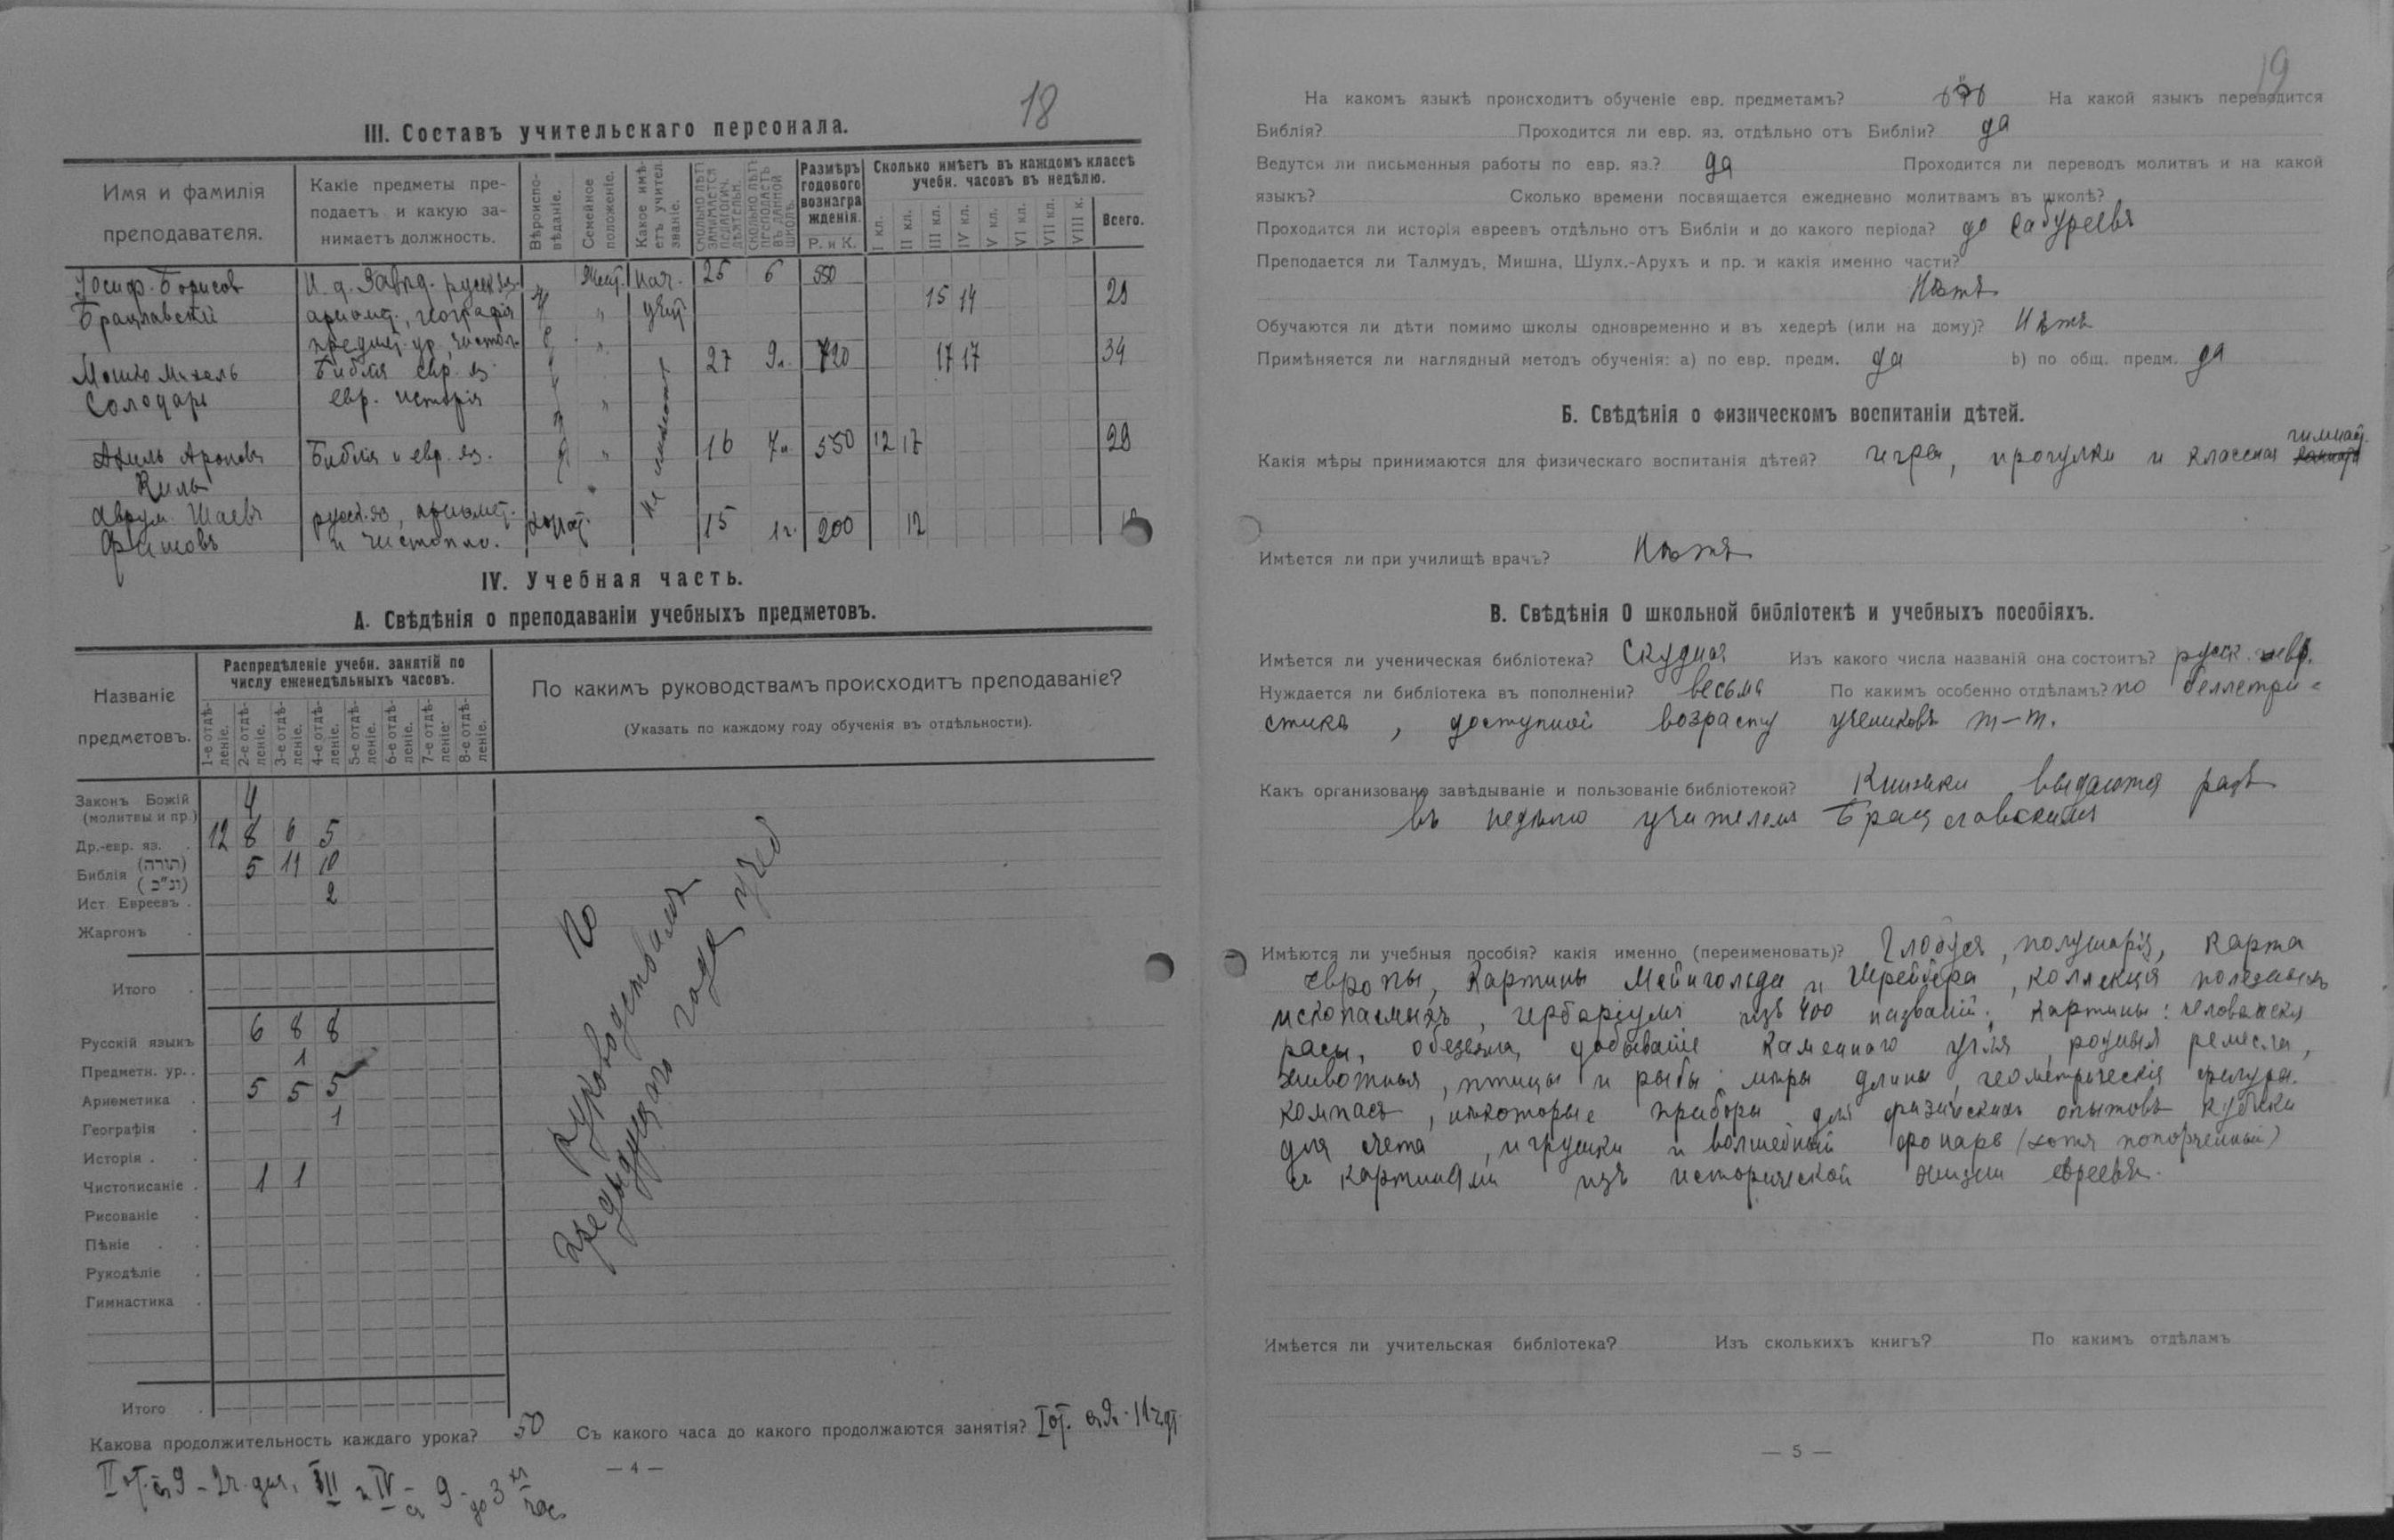 18
III. Составъ учительскаго персонала.
Имя и фамилія преподавателя.
Какіе предметы преподаетъ и какую занимаетъ должность.
Вѣроисповѣданіе.
Семейное положеніе.
Какое имѣетъ учител. званіе.
Сколько лѣтъ занимается педагогич. дѣятельн.
Сколько лѣтъ преподаетъ въ данной школѣ.
Размѣръ годового вознагражденія.
Р. и К.
Сколько имѣетъ въ каждомъ классѣ учебн. часовъ въ недѣлю.
I кл. II кл. III кл. IV кл. V кл. VI кл. VII кл. VIII к. Всего.
Іосиф. Борисов И. д. Завѣд. русск. яз. Жен. Нач. 25 6 550
Брацлавскій ариѳмет., географія " учит. 15 14 29
предмет. ур., чистоп. "
Мошко Михель Библія евр. яз. 27 9 л. 720 17 17 34
Солодарь евр. исторія "
Ароновъ Библія и евр. яз. " 16 7 л. 550 12 17 29
Киль
Аврум. Шаевъ русск. яз., ариѳмет. холост. 15 1 г. 200 12
и чистопис.
Не имѣютъ
IV. Учебная часть.
А. Свѣдѣнія о преподаваніи учебныхъ предметовъ.
Названіе предметовъ.
Распредѣленіе учебн. занятій по числу еженедѣльныхъ часовъ.
1-е отдѣленіе. 2-е отдѣленіе. 3-е отдѣленіе. 4-е отдѣленіе. 5-е отдѣленіе. 6-е отдѣленіе. 7-е отдѣленіе. 8-е отдѣленіе.
По какимъ руководствамъ происходитъ преподаваніе?
(Указать по каждому году обученія въ отдѣльности).
Законъ Божій (молитвы и пр.) 4
Др.-евр. яз. 12 8 6 5
Библія (תורה) (נ"כ) 5 11 10
Ист. Евреевъ 2
Жаргонъ
Итого
Русскій языкъ 6 8 8
Предметн. ур. 1
Ариѳметика 5 5 5
Географія 1
Исторія
Чистописаніе 1 1
Рисованіе
Пѣніе
Рукодѣліе
Гимнастика
Итого
По
руководствамъ
предыдущаго года
Какова продолжительность каждаго урока? 50 Съ какого часа до какого продолжаются занятія? I от.
II от. съ 9 – 2 ч. дня, III и IV – съ 9 – до 3 час
— 4 —
19
На какомъ языкѣ происходитъ обученіе евр. предметамъ? На какой языкъ переводится
Библія? Проходится ли евр. яз. отдѣльно отъ Библіи? да
Ведутся ли письменныя работы по евр. яз.? да Проходится ли переводъ молитвъ и на какой
языкъ? Сколько времени посвящается ежедневно молитвамъ въ школѣ?
Проходится ли исторія евреевъ отдѣльно отъ Библіи и до какого періода? до Сабуреевъ
Преподается ли Талмудъ, Мишна, Шулх.-Арухъ и пр. и какія именно части?
Нѣтъ
Обучаются ли дѣти помимо школы одновременно и въ хедерѣ (или на дому)? Нѣтъ
Примѣняется ли наглядный методъ обученія: а) по евр. предм. да b) по общ. предм. да
Б. Свѣдѣнія о физическомъ воспитаніи дѣтей.
Какія мѣры принимаются для физическаго воспитанія дѣтей? игры, прогулки и классная гимнаст.
Имѣется ли при училищѣ врачъ? Нѣтъ
В. Свѣдѣнія О школьной библіотекѣ и учебныхъ пособіяхъ.
Имѣется ли ученическая библіотека? Скудная Изъ какого числа названій она состоитъ? русск. и евр.
Нуждается ли библіотека въ пополненіи? весьма По какимъ особенно отдѣламъ? по беллетри-
стикѣ, доступной возрасту учениковъ
Какъ организовано завѣдываніе и пользованіе библіотекой? Книжки выдаются разъ
въ недѣлю учителемъ Брацлавскимъ
Имѣются ли учебныя пособія? какія именно (переименовать)? Глобусъ, полушарія, карта
Европы, картины Мейнгольда и Шрейбера, коллекція полезныхъ
ископаемыхъ, гербаріумъ изъ 400 названій; картины: человѣческія
расы, обезьяна, добываніе каменнаго угля, ремесла,
животныя, птицы и рыбы; мѣры длины, геометрическія фигуры.
компасъ, нѣкоторые приборы для физическихъ опытовъ кубики
для счета, игрушки и волшебный фонарь (хотя попорченный)
съ картинами изъ исторической жизни евреевъ.
Имѣется ли учительская библіотека? Изъ сколькихъ книгъ? По какимъ отдѣламъ
— 5 —